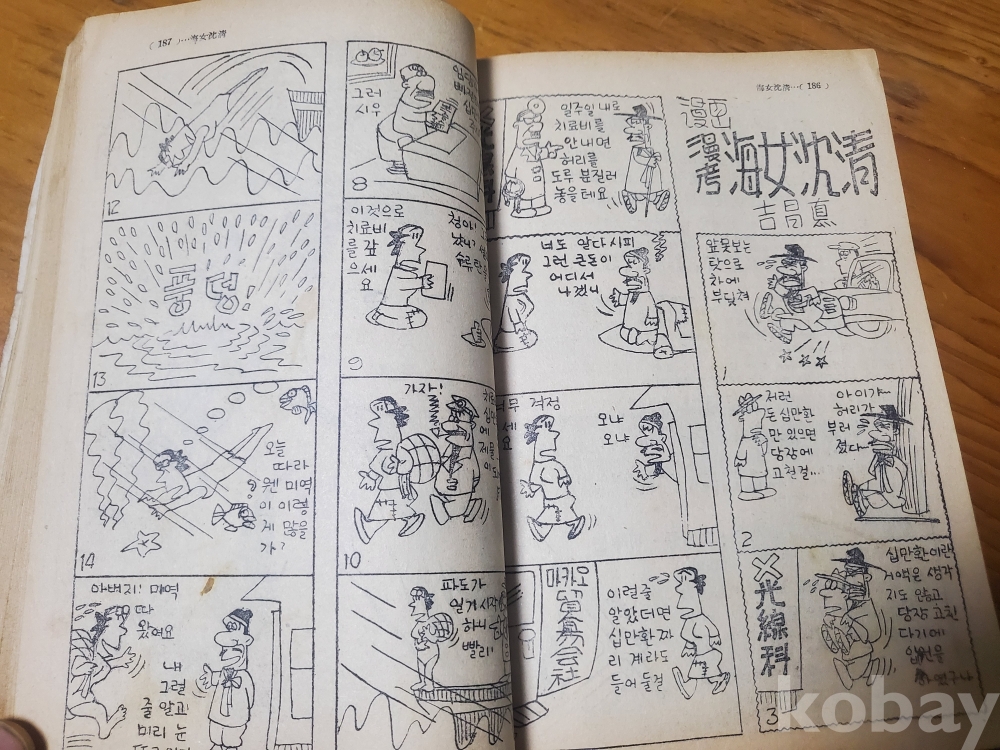 海女沈清…( 186 )
漫画
漫考 海女沈清
吉昌悳
앞못보는
탓으로
차에
부딪쳐
1
저런
돈 십만환
만 있으면
당장에
고친걸…
아이갸~
허리가
부러
졌다
2
X光線科
십만환이란
거액은 생각
지도 않고
당장 고친
다기에
입원을
3
일주일 내로
치료비를
안내면
허리를
도루 분질러
놓을테요
너도 알다시피
그런 큰돈이
어디서
나겠니
걱정
세요
오냐
오냐
마카오
이럴줄
알았더면
십만환짜
리 계라도
들어둘걸
( 187 )…海女沈清
그러
시우
8
이것으로
치료비
를 갚
으세
요
9
가자!
10
파도가
일기 시작
하니
빨리!
12
풍덩!
13
오늘
따라
웬 미역
이 이렇
게 많을
가?
14
아버지! 미역
따
왔어요
내
그럴
줄 알고
미리 눈